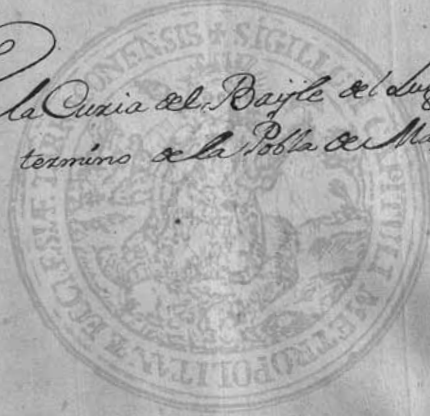 la Curia del Bayle del Lug
termino de la Pobla de Ma
SIGILLUM CAPITULI METROPOLITANÆ ECCLESIÆ TARRACONENSIS